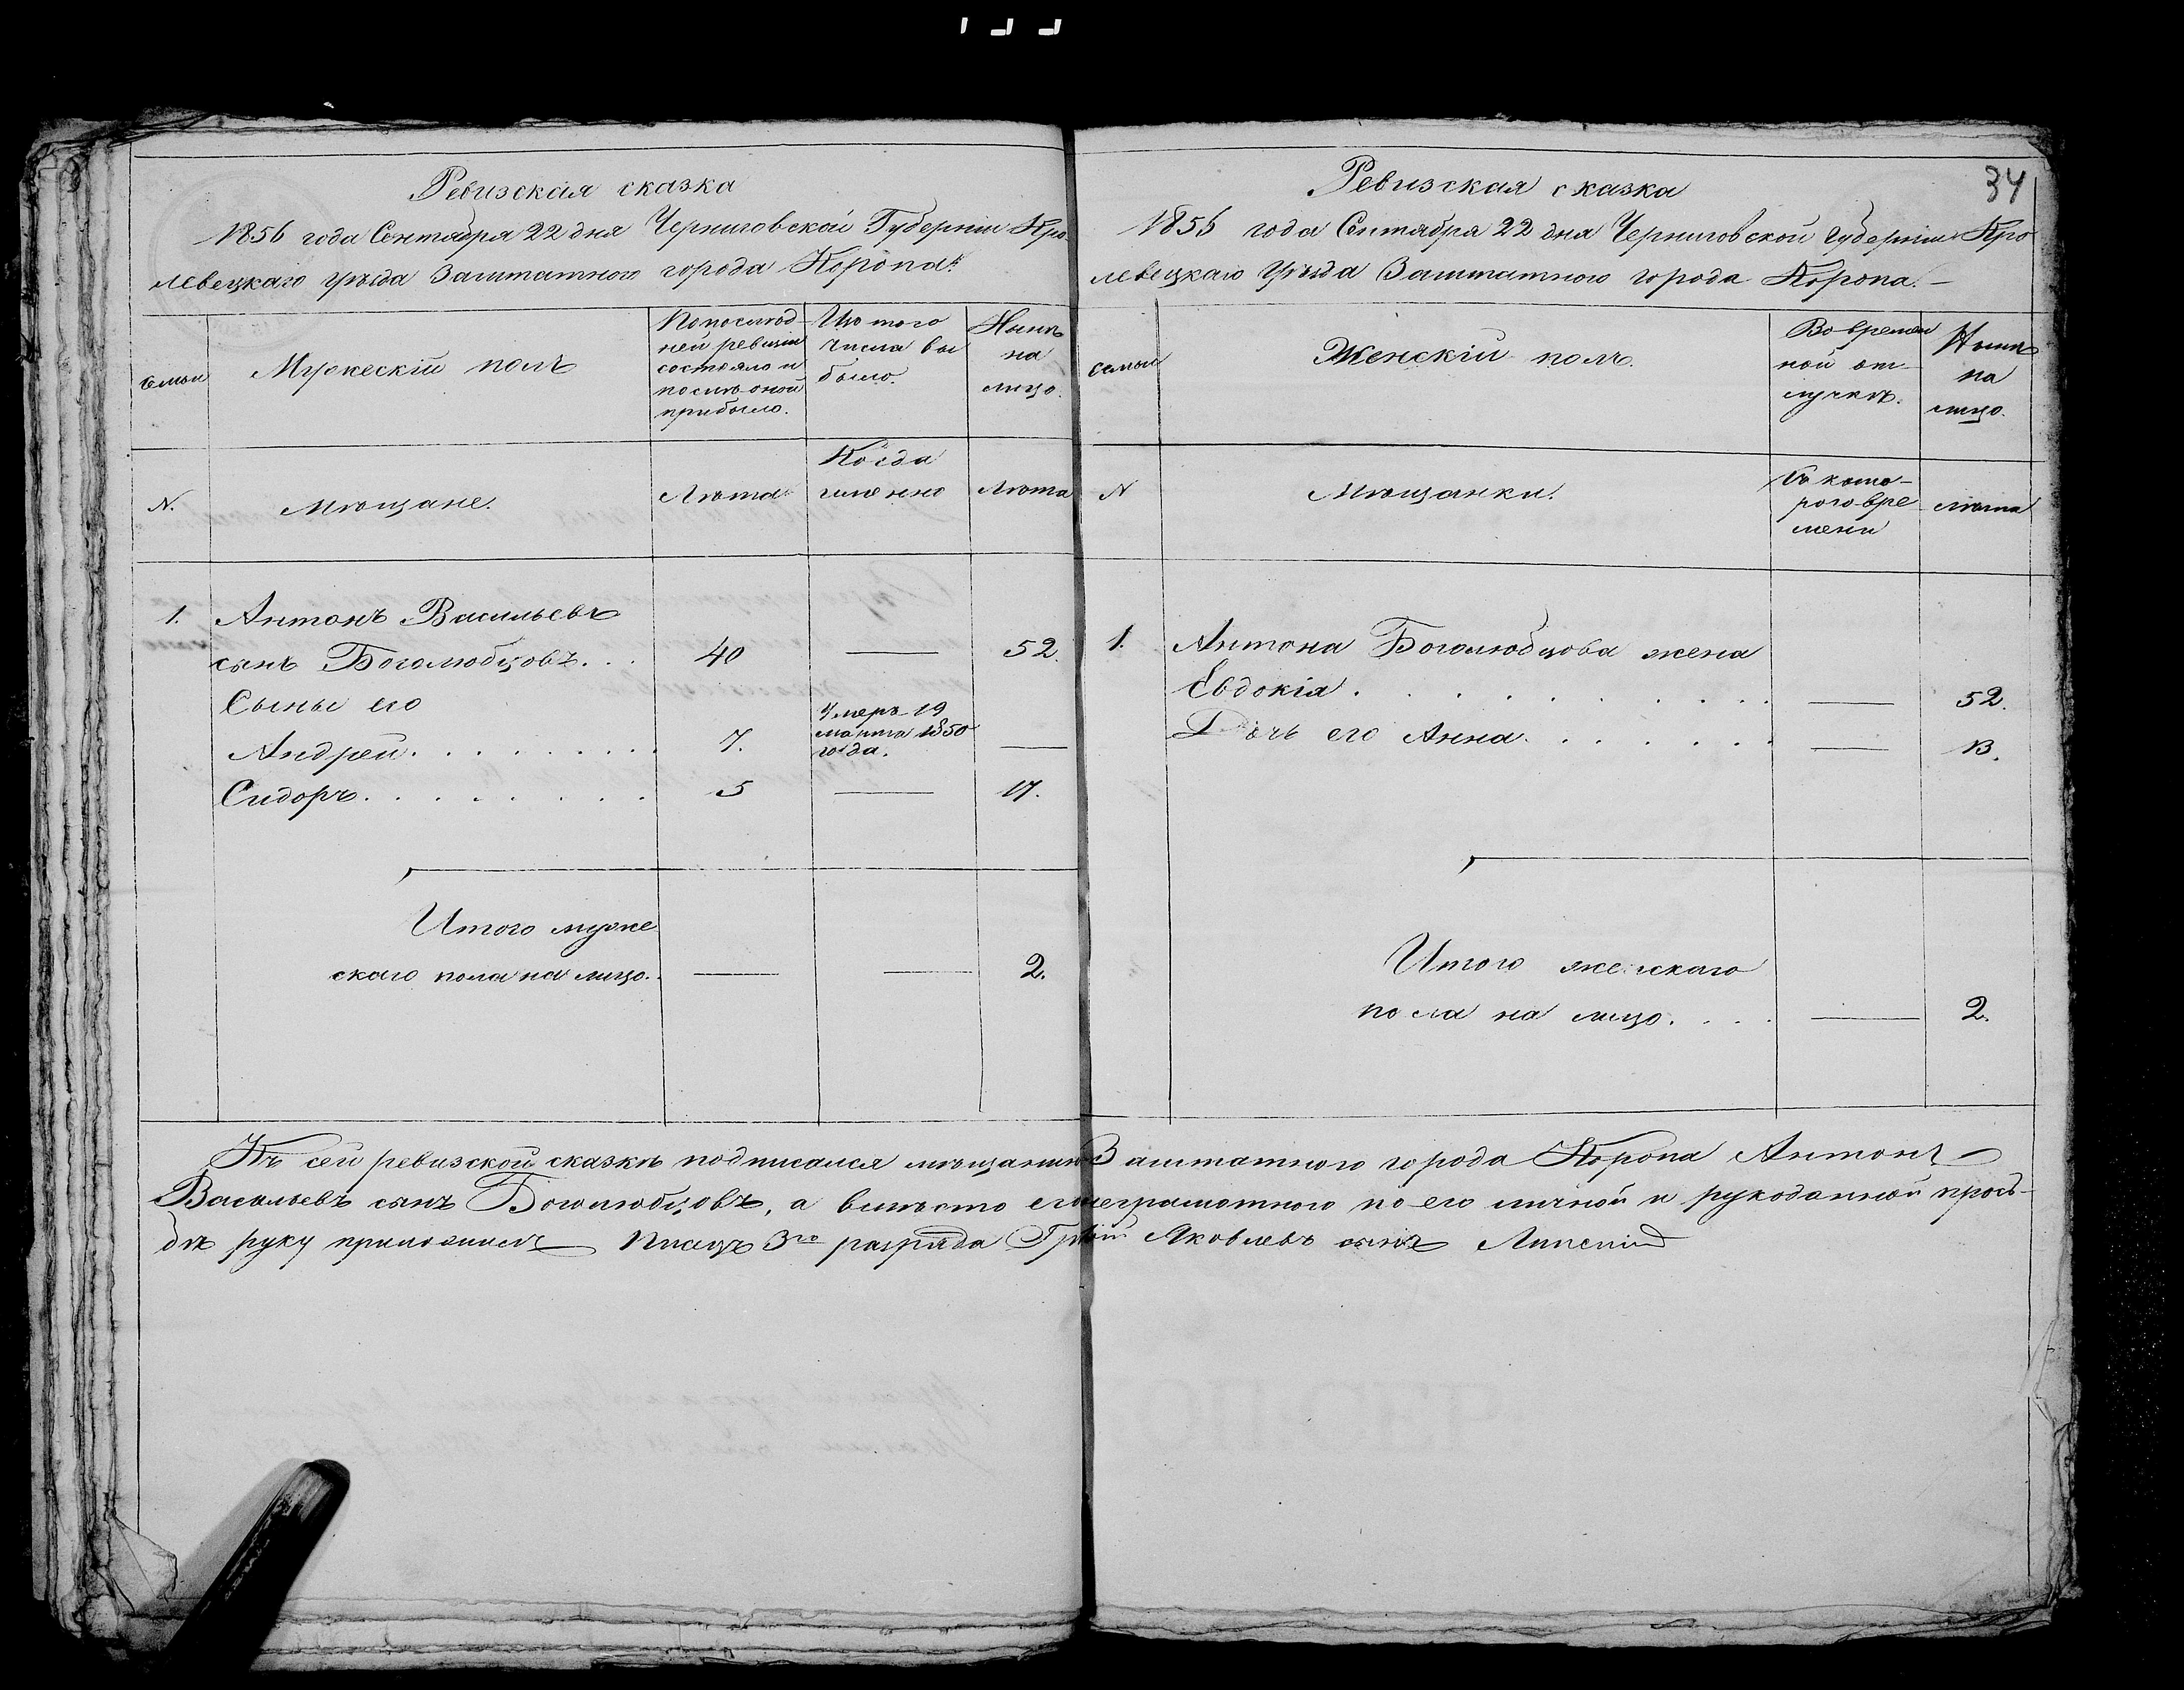 Ревизская сказка
1856 года Сентября 22 дня Черниговской Губернии Кро
левецкаго уѣзда Заштатного города Коропа.
семьи
Мужескій полъ
По послѣд-
ней ревизіи
состояло и
послѣ оной
прибыло.
Изъ того
числа вы
было.
Нынѣ
на
лицо.
N.
Мѣщане.
Лѣта
Когда
именно
Лѣта
1. Антонъ Васильевъ
сынъ Боголюбцовъ. . . 40 — 52.
Сыны его
Андрей. . . . . . . . 7. Умеръ 19
марта 1850
года. —
Сидоръ. . . . . . . . 5 — 17.
Итого муже
скаго пола на лицо. . — — 2.
34
Ревизская сказка
1856 года Сентября 22 дня Черниговской Губерніи Кро
левецкаго Уѣзда Заштатного города Коропа. —
семьи
Женскій полъ.
Во времен
ной от-
лучкѣ.
Нынѣ
на
лицо.
N
Мѣщанки.
Съ кото-
рого вре
мени
лѣта
1. Антона Боголюбцова жена
Евдокія . . . . . . . . — 52.
Дочь его Анна. . . . . . — 13.
Итого женскаго
пола на лицо. . . . — 2.
Къ сей ревизской сказкѣ подписался мѣщанинъ Заштатного города Коропа Антонъ
Васильевъ сынъ Боголюбцовъ, а вмѣсто его неграмотного по его личной и рукоданной прось-
бѣ руку приложилъ Писецъ 3го разряда Яковлевъ сынъ